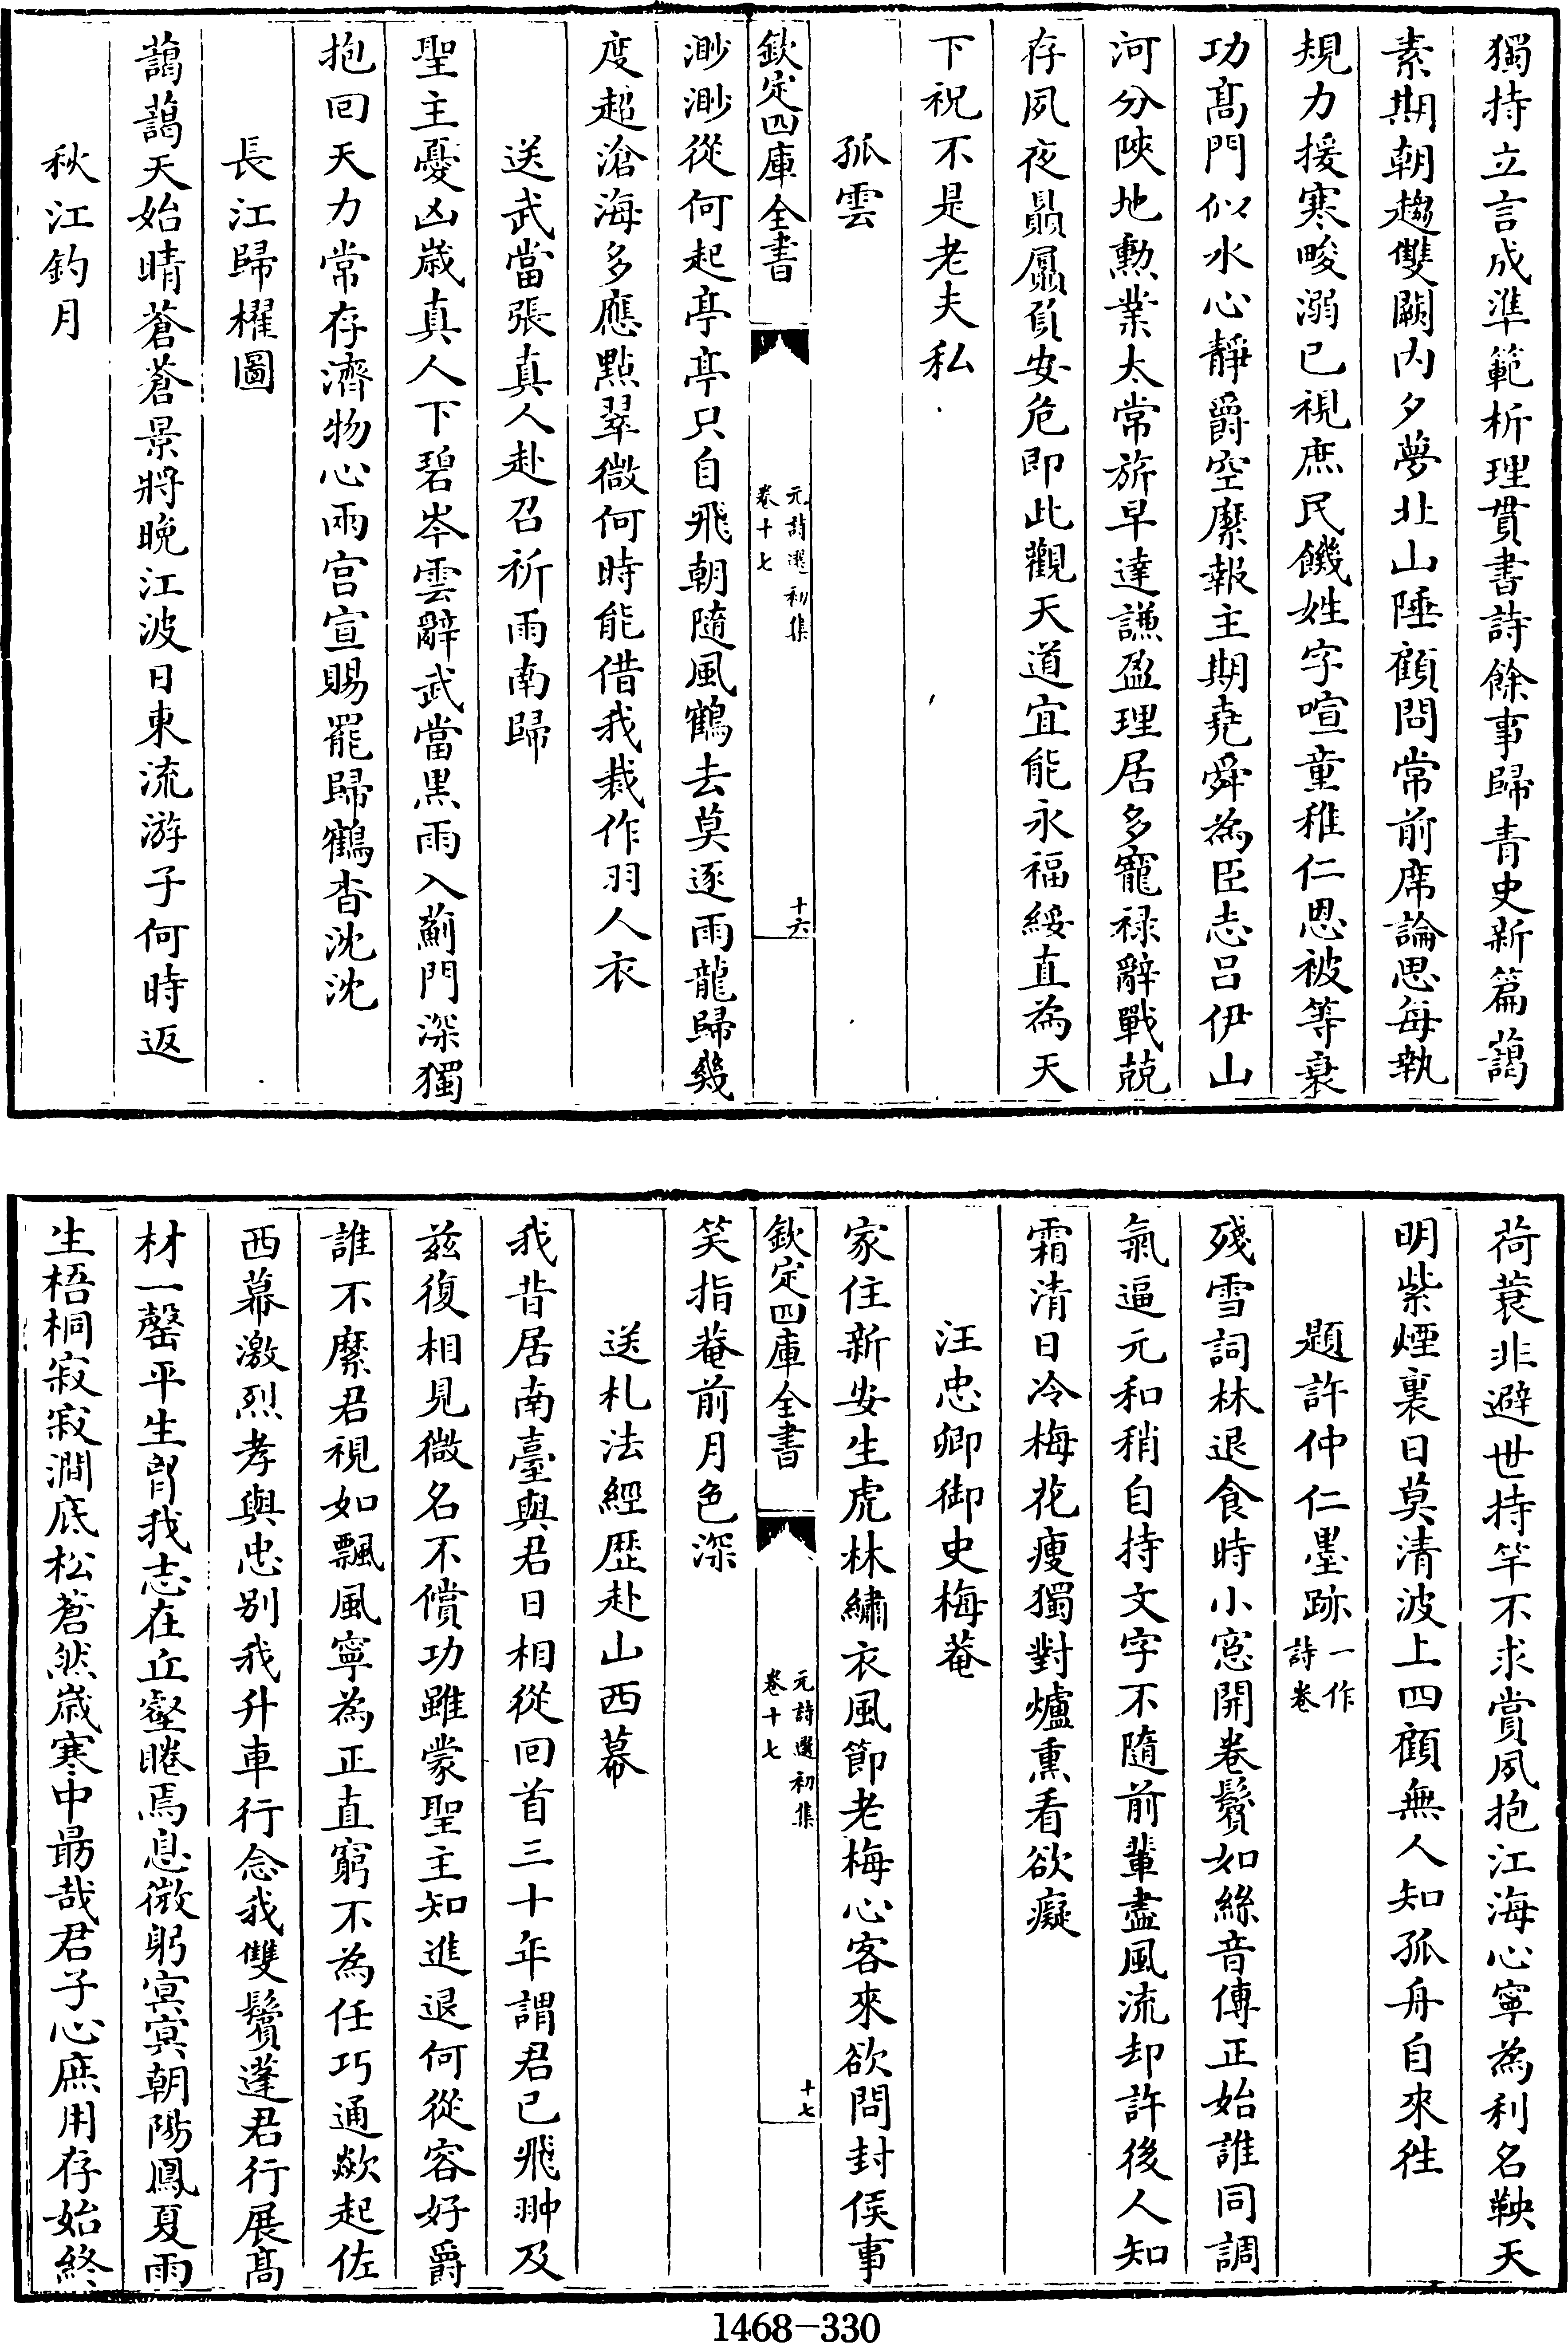 獨持立言成準範析理貫書詩餘事歸青史新篇藹
素期朝趨雙闕内夕夢北山陲顧問常前席論思每執
規力援寒畯溺已視庶民饑姓字喧童稚仁恩被等衰
功髙門似水心靜爵空縻報主期堯舜為臣志吕伊山
河分陜地勲業太常旂早達謙盈理居多寵禄辭戰兢
存夙夜贔屭負安危即此觀天道宜能永福綏直為天
下祝不是老夫私
孤雲
欽定四庫全書
元詩選初集
卷十七
十六
渺渺從何起亭亭只自飛朝隨風鶴去莫逐雨龍歸幾
度超滄海多應點翠微何時能借我裁作羽人衣
送武當張真人赴召祈雨南歸
聖主憂凶歲真人下碧岑雲辭武當黒雨入薊門深獨
抱囘天力常存濟物心雨宫宣賜罷歸鶴杳沈沈
長江歸櫂圖
藹藹天始晴蒼蒼景將晚江波日東流游子何時返
秋江釣月
荷蓑非避世持竿不求賞夙抱江海心寧為利名鞅天
明紫煙裏日莫清波上四顧無人知孤舟自來往
題許仲仁墨跡一作詩卷
殘雪詞林退食時小窓開卷鬢如絲音傳正始誰同調
氣逼元和稍自持文字不隨前輩盡風流却許後人知
霜清日冷梅花瘦獨對爐熏看欲癡
汪忠卿御史梅菴
家住新安生虎林繡衣風節老梅心客來欲問封侯事
欽定四庫全書
元詩選初集
卷十七
十七
笑指菴前月色深
送札法經歴赴山西幕
我昔居南臺與君日相從回首三十年謂君已飛翀及
兹復相見微名不償功雖蒙聖主知進退何從容好爵
誰不縻君視如飄風寧為正直窮不為任巧通歘起佐
西幕激烈孝與忠别我升車行念我雙鬢蓬君行展髙
材一罄平生胷我志在丘壑睠焉息微躬冥冥朝陽鳳夏雨
生梧桐寂寂澗底松蒼然歲寒中朂哉君子心庶用存始終
1468-330